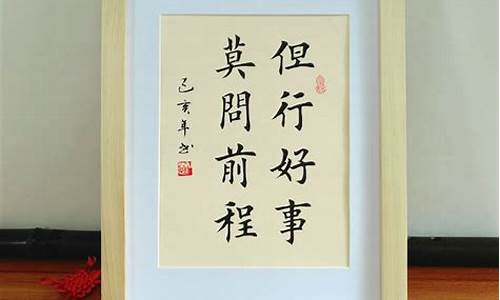 但行好事
莫問前程
己亥年书